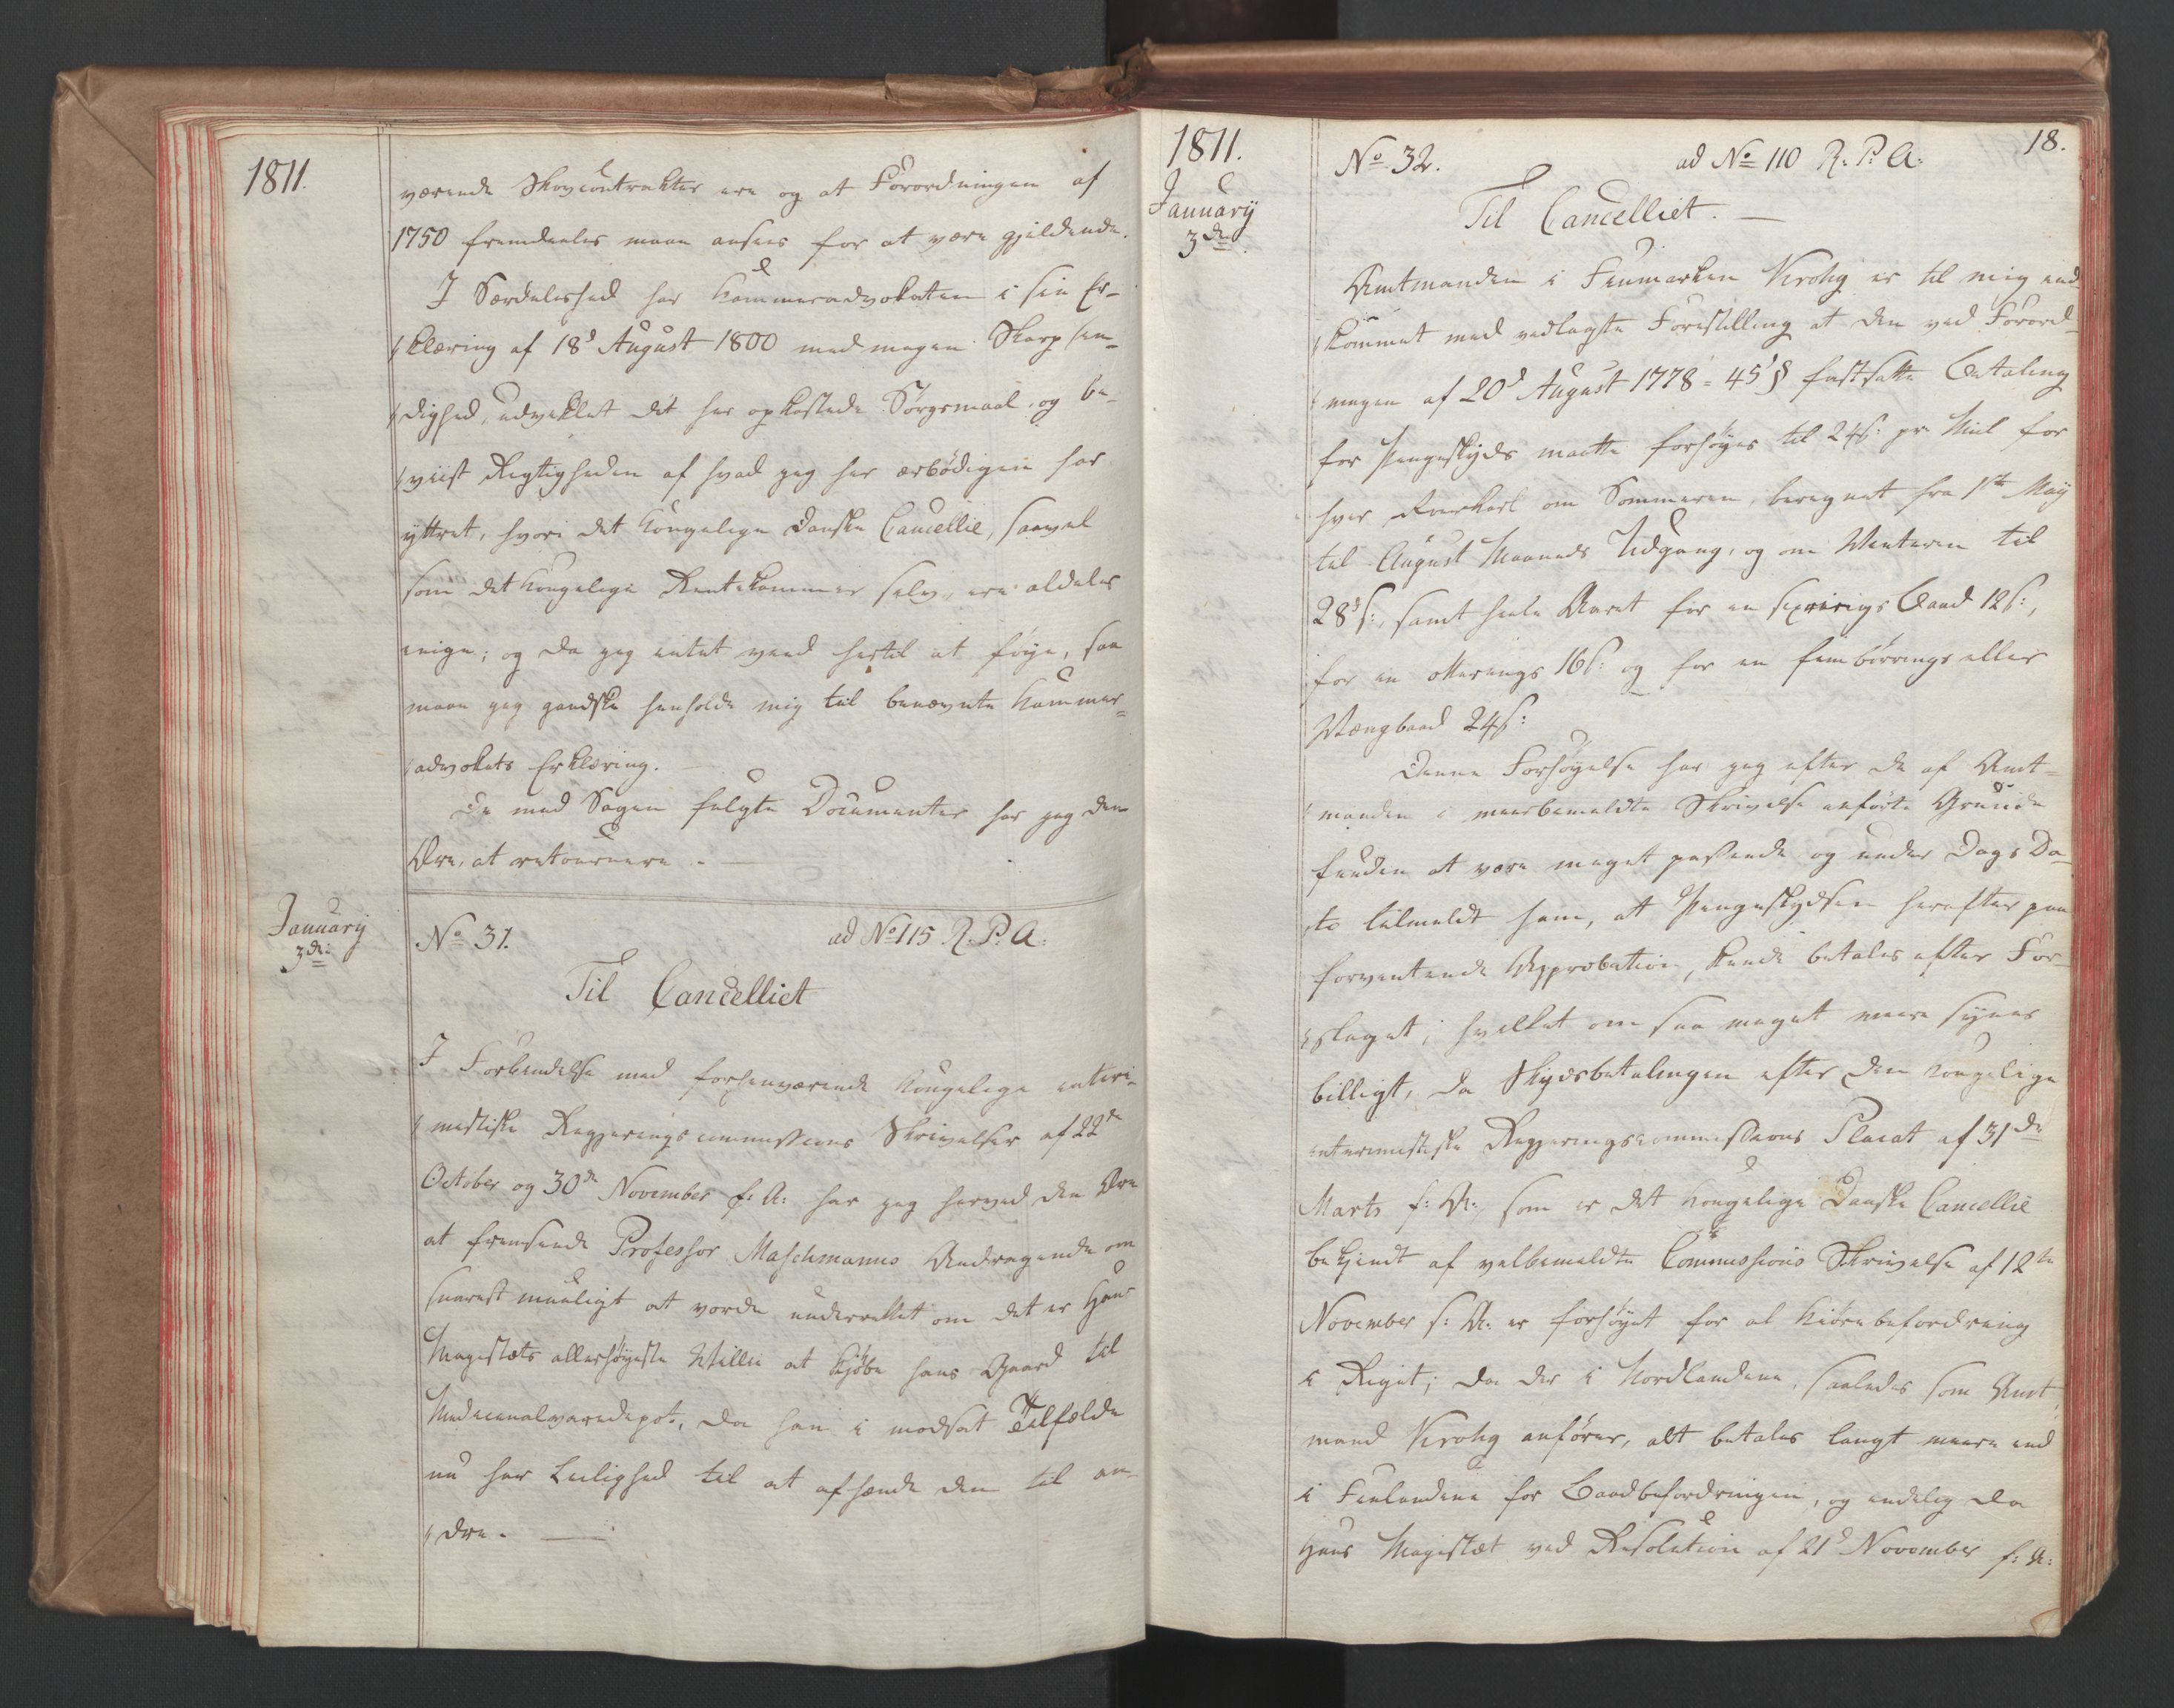 1811.
værende Skovcontrakter ere og at Forordningen af
1750 fremdeeles maae ansees for at være gjeldende.
I Særdeleshed har Kammeradvokaten i sin Er-
klæring af 18d August 1800 med megen Skarpsin-
dighed, udviklet det her opkastede Sørgsmaal, og be-
viist Rigtigheden af hvad jeg her ærbödigen har
yttret, hvori det Kongelige Danske Cancellie, saavel
som det Kongelige Rentekammer selv, ere aldeles
enige; og da jeg intet veed hertil at föye, saa
maae jeg gandske henholde mig til benævnte Kammer-
advokats Erklæring.
De med Sagen fulgte Documenter har jeg den
Ære, at retournere. —
January
3de:
No 31.
ad No 115 R: P: A:
Til Cancelliet
I Forbindelse med forhenværende Kongelige interi-
mistiske Regjeringscommissions Skrivelser af 22de
October og 30de November f: A: har jeg herved den Ære
at fremsende Professor Maschmanns Andragende om
snarest mueligt at vorde underrettet om det er Hans
Majestæts allerhöyeste Villie at kjöbe hans Gaard til
Medicinalvaredepot, da han i modsat Tilfælde
nu har Leilighed til at afhænde den til an-
dre. —
1811.
January
3de.
18.
No 32.
ad No 110 R: P: A:
Til Cancelliet. —
Amtmanden i Finmarken Krohg er til mig ind-
kommet med vedlagte Forestilling at den ved Forord-
ningen af 20d August 1778 = 45' § fastsatte Betaling
for Pengeskyds maatte forhöyes til 24 s: pr Miil for
hver Roerkarl om Sommeren, beregnet fra 1te May
til August Maaneds Udgang, og om Vinteren til
28 s:, samt heele Aaret for en sexrings Baad 12 s:,
for en ottrings 16 s: og for en fembörings eller
Vængbaad 24 s:
Denne Forhöyelse har jeg efter de af Amt-
manden i meerbemeldte Skrivelse anförte Grunde
funden at være meget passende og under Dags Da-
to tilmeldt ham, at Pengeskydsen herefter paa
forventende Approbation, kunde betales efter For-
slaget; hvilket om saa meget meere synes
billigt, da Skydsbetalingen efter den Kongelige
interimistiske Regjeringscommissions Placat af 31de
Marts f: A:, som er det Kongelige Danske Cancellie
bekjendt af velbemeldte Commissions Skrivelse af 12te
November s: A: er forhöyet for al Kiörebefordring
i Riget; da der i Nordlandene, saaledes som Amt-
mand Krohg anförer, alt betales langt meere end
i Finlandene for Baadbefordringen, og endelig da
Hans Majestæt ved Resolution af 21d November f: A: